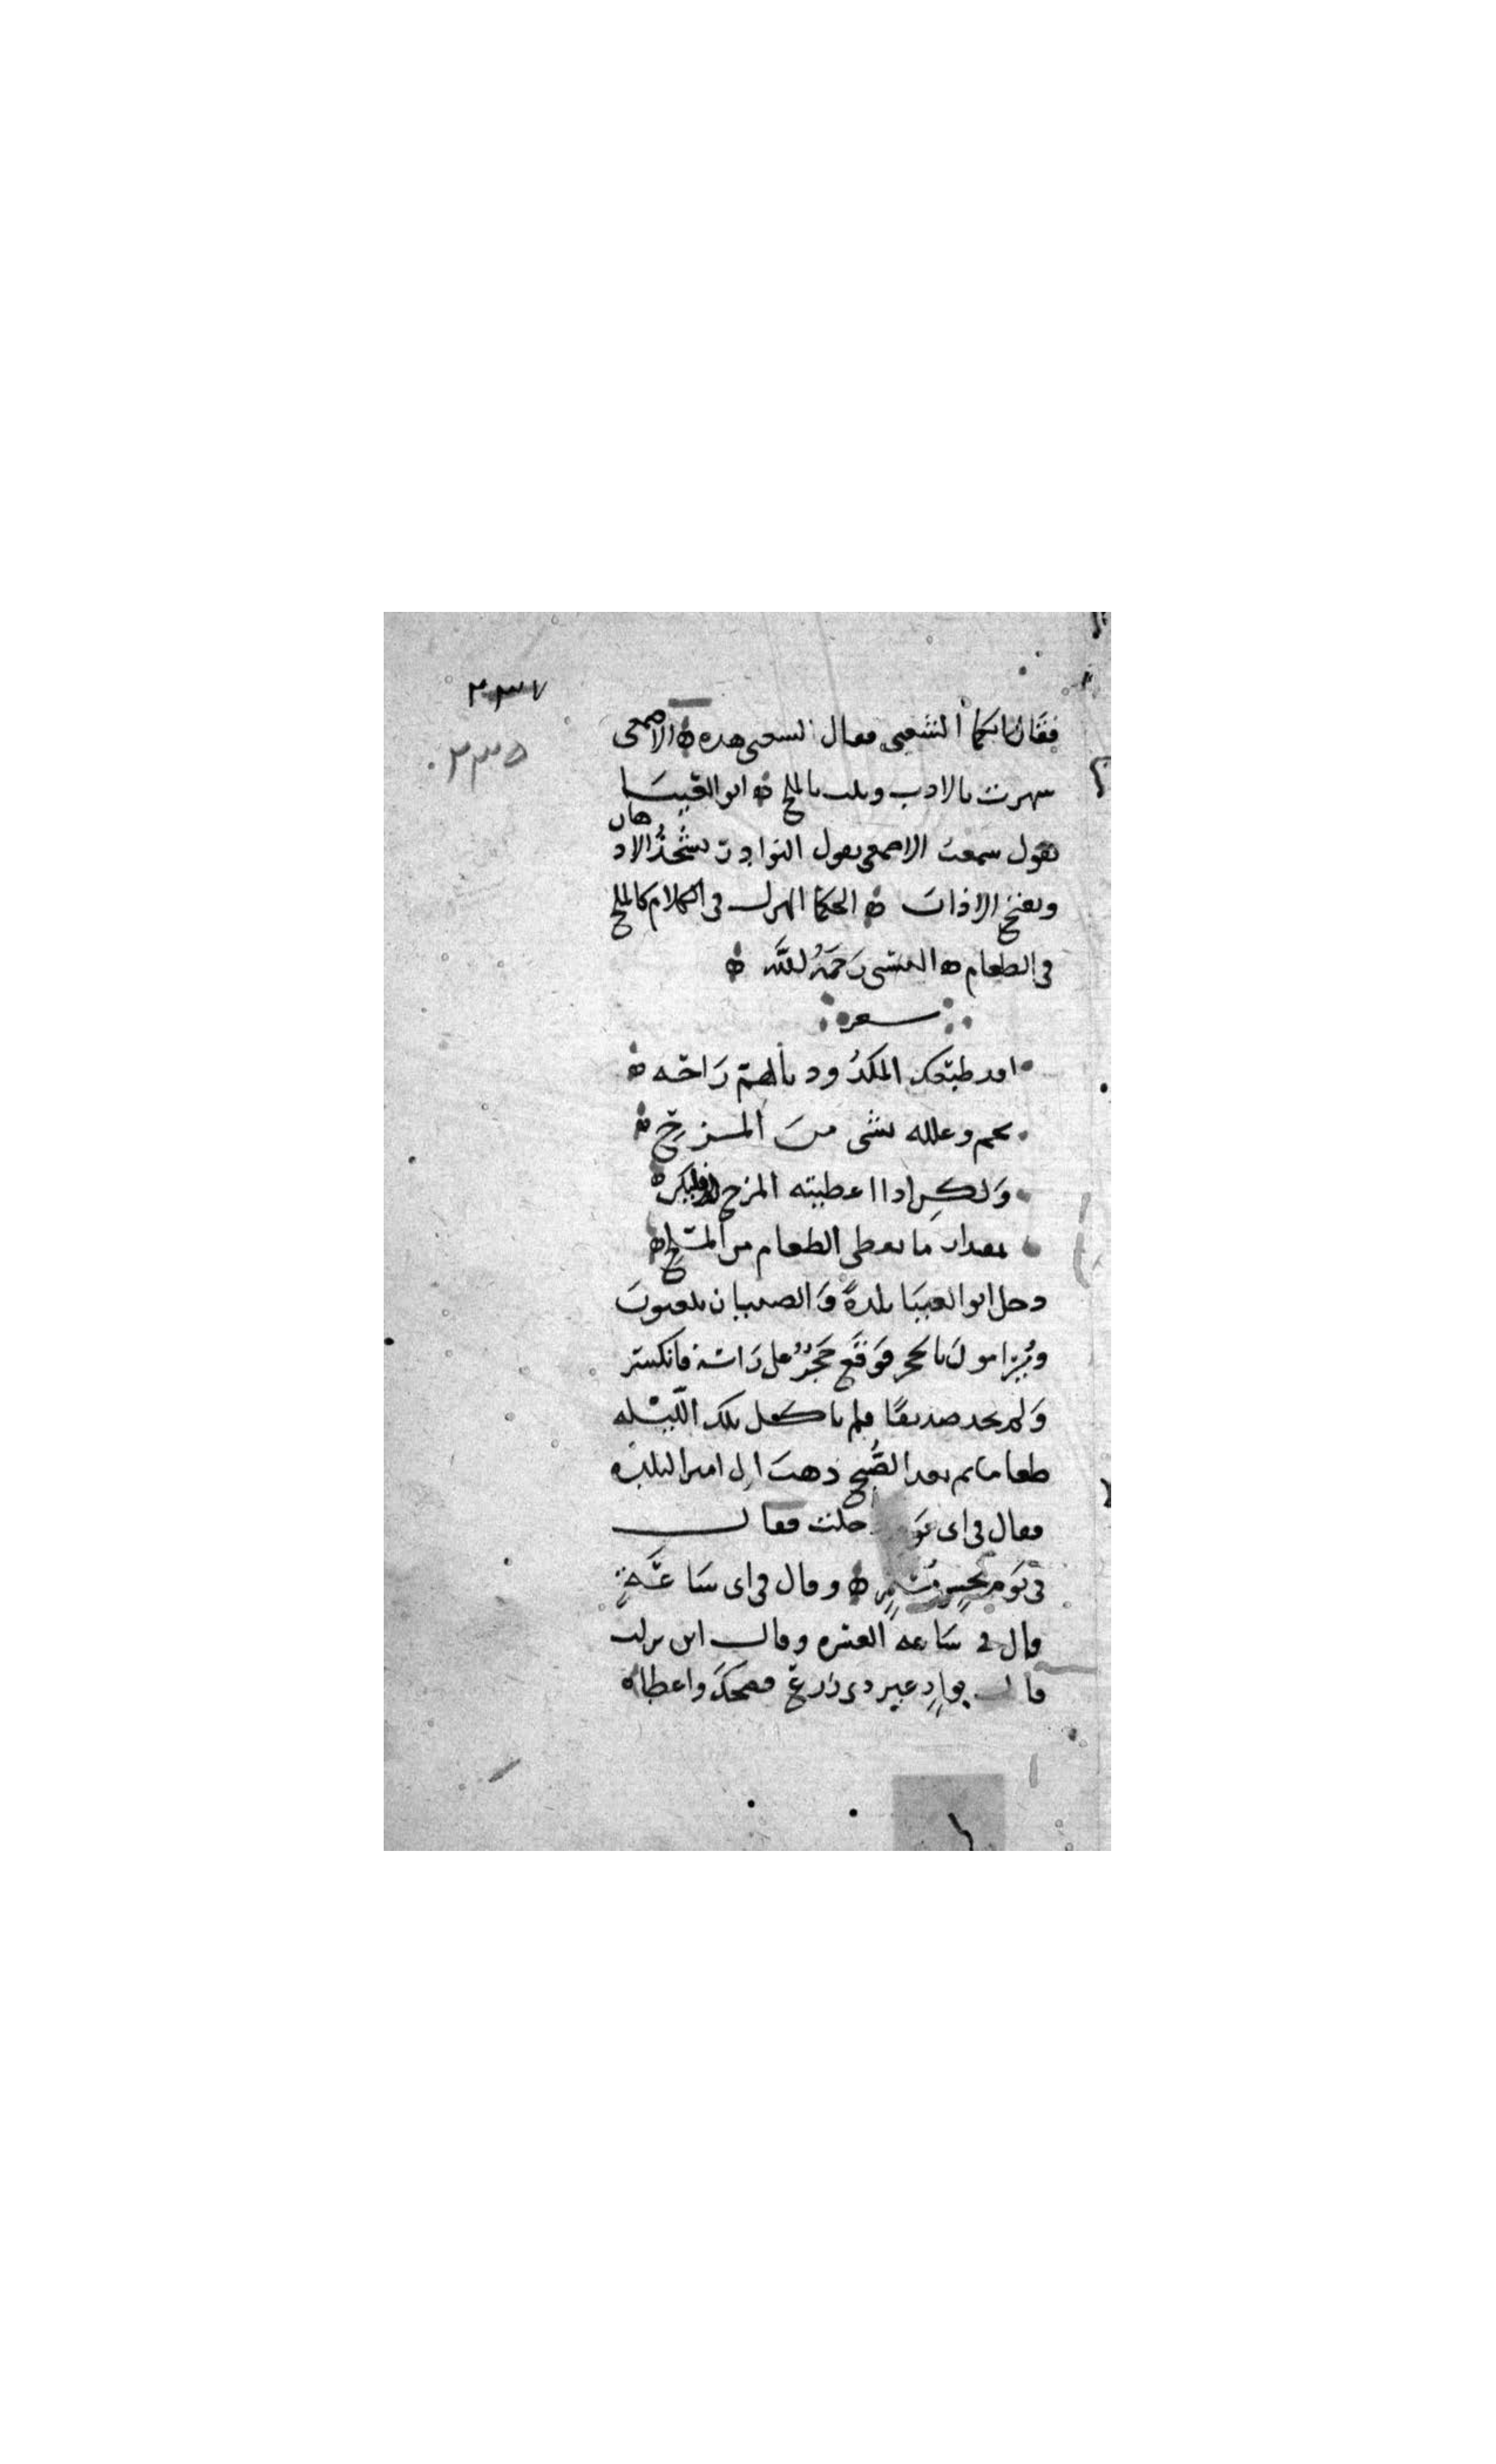 ٢٣٧
٢٣٥
فقال ايكما الشعبى فقال الشعبى هذه ه الاصمعى
شهرت بالادب ونلت بالملح ه ابو العينا
يقول سمعت الاصمعى يقول النوادر تشحذ الاذهان
وتفتح الاذان ه الحكما الهزل فى الكلام كالملح
فى الطعام ه البستى رَحمَهُ اللَّه ه
شعر
افد طبعك المكدُود بالهم رَاحَه ه
يجم وعلله بشى منَ المزح ه
وَلكِن اذا اعطيته المزح فليكن ه
بمقدار ما يعطى الطعام من الملح ه
دخل ابو العينا بلدةً وَالصبيان يلعبونَ
ويُرامونَ بالحجر فوَقَع حَجَرٌ على رَاسه فانكسر
وَلم يجد صديقًا فلم ياكل تلك اللّيله
طعاما ثم بعد الصُّبح ذهبَ الى امير البلده
فقال فى اى يَوم دخلت فقال
فى يَومِ نحِسٍ مُستمِرٍ ه وقال فى اى سَاعَةٍ
قال فى سَاعه العسره وقال اين نزلت
قال بوادٍ غير ذى زرع فضحكَ واعطاه